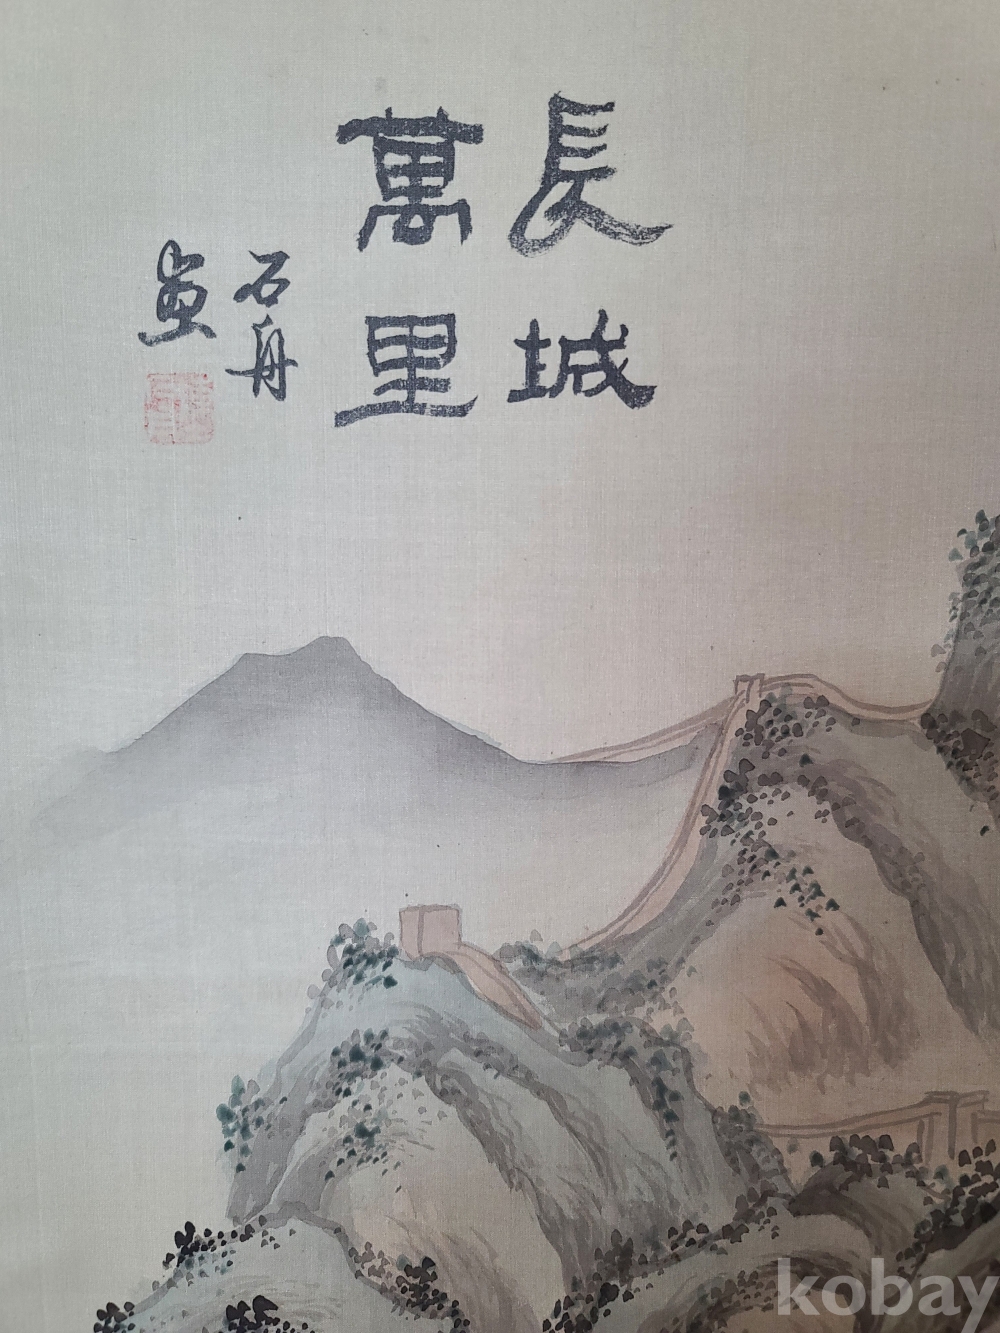 長城
萬里
石舟
畫
kobay